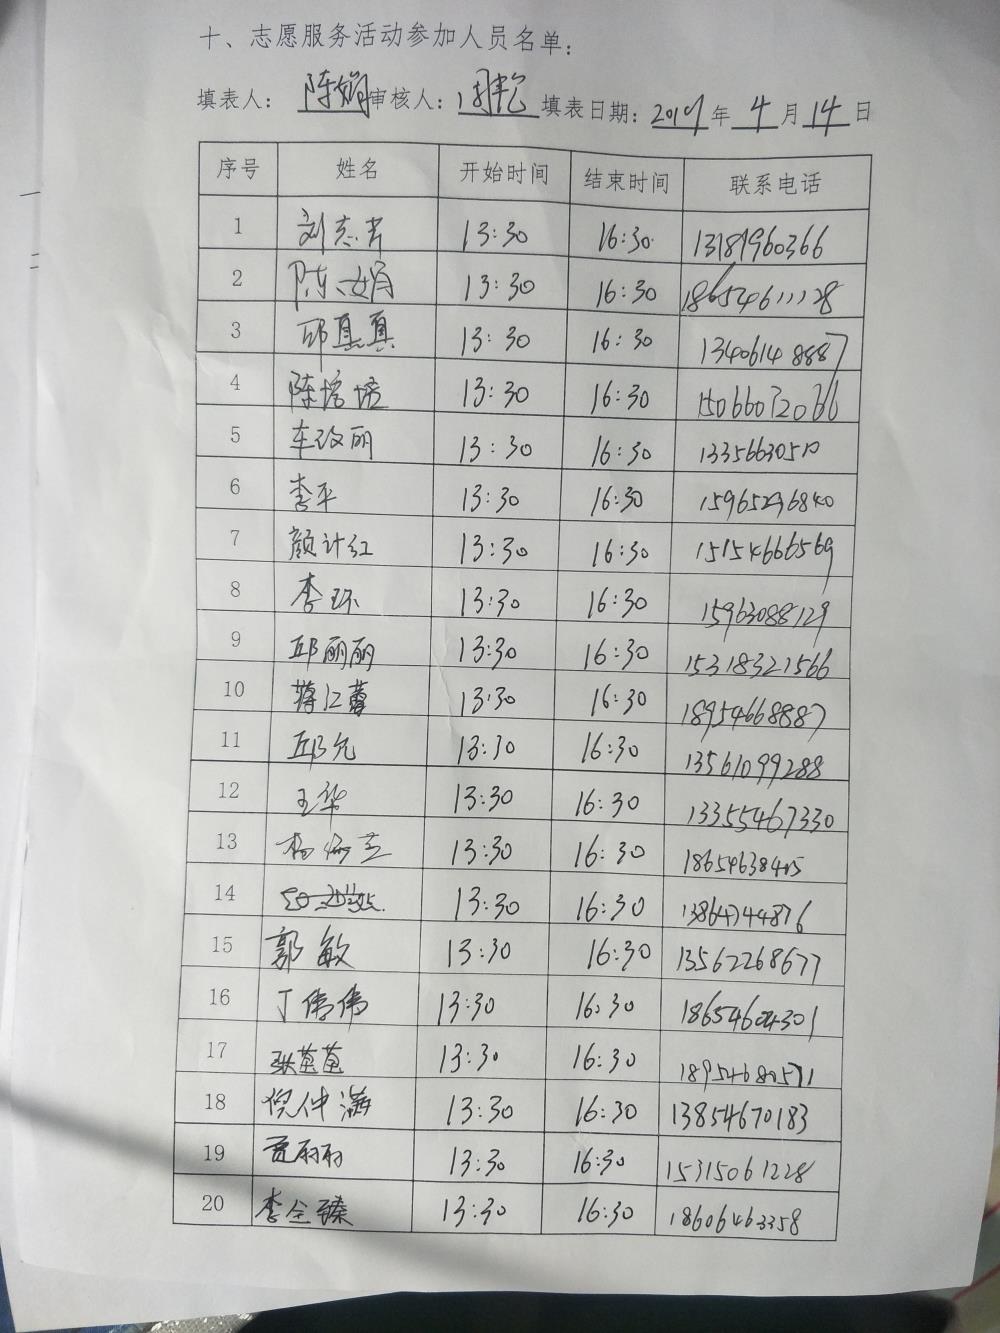 十、志愿服务活动参加人员名单:
填表人: 陈娟 审核人: 填表日期: 2019年 4 月 14 日
序号 姓名 开始时间 结束时间 联系电话
1 刘志芳 13:30 16:30 13181960366
2 陈娟 13:30 16:30 18654611128
3 邱真真 13:30 16:30 13406148887
4 陈培培 13:30 16:30 15066072066
5 车改丽 13:30 16:30 13356630510
6 李平 13:30 16:30 15965296840
7 颜计红 13:30 16:30 15154666569
8 李环 13:30 16:30 15963088129
9 邱丽丽 13:30 16:30 15318321566
10 蒋江蕾 13:30 16:30 18954668887
11 邱允 13:30 16:30 13561099288
12 王华 13:30 16:30 13355467330
13 杨 芝 13:30 16:30 18654638405
14 13:30 16:30 13864744876
15 郭敏 13:30 16:30 13562268677
16 丁伟伟 13:30 16:30 18654604301
17 张苗苗 13:30 16:30 18954680571
18 倪仲满 13:30 16:30 13854670183
19 贾丽丽 13:30 16:30 15315061228
20 李全臻 13:30 16:30 18606463358